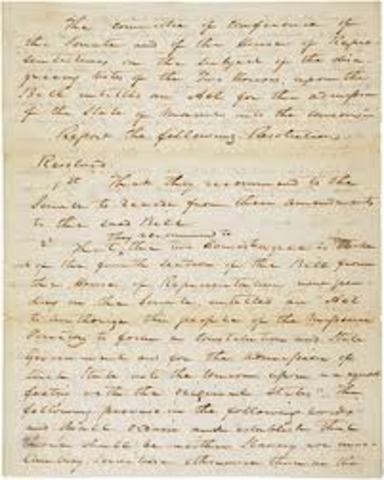 The committee of conference of
the Senate and of the House of Repre
sentatives on the subject of the disa
greeing votes of the Two Houses, upon the
Bill entitled an Act for the admission
of the State of Maine into the Union
Report the following Resolution
Resolved
1st That they recommend to the
Senate to recede from their amendments
to the said Bill
2d That they recommend to the two Houses to agree to strike
out of the fourth section of the Bill from
the House of Representatives now pen
ding in the Senate, entitled an Act
to authorize the people of the Missouri
Territory to form a constitution and State
Government and for the admission of
such State into the Union upon an equal
footing with the original States", the
following proviso in the following words
and shall ordain and establish that
there shall be neither Slavery nor invo
luntary servitude otherwise than in the